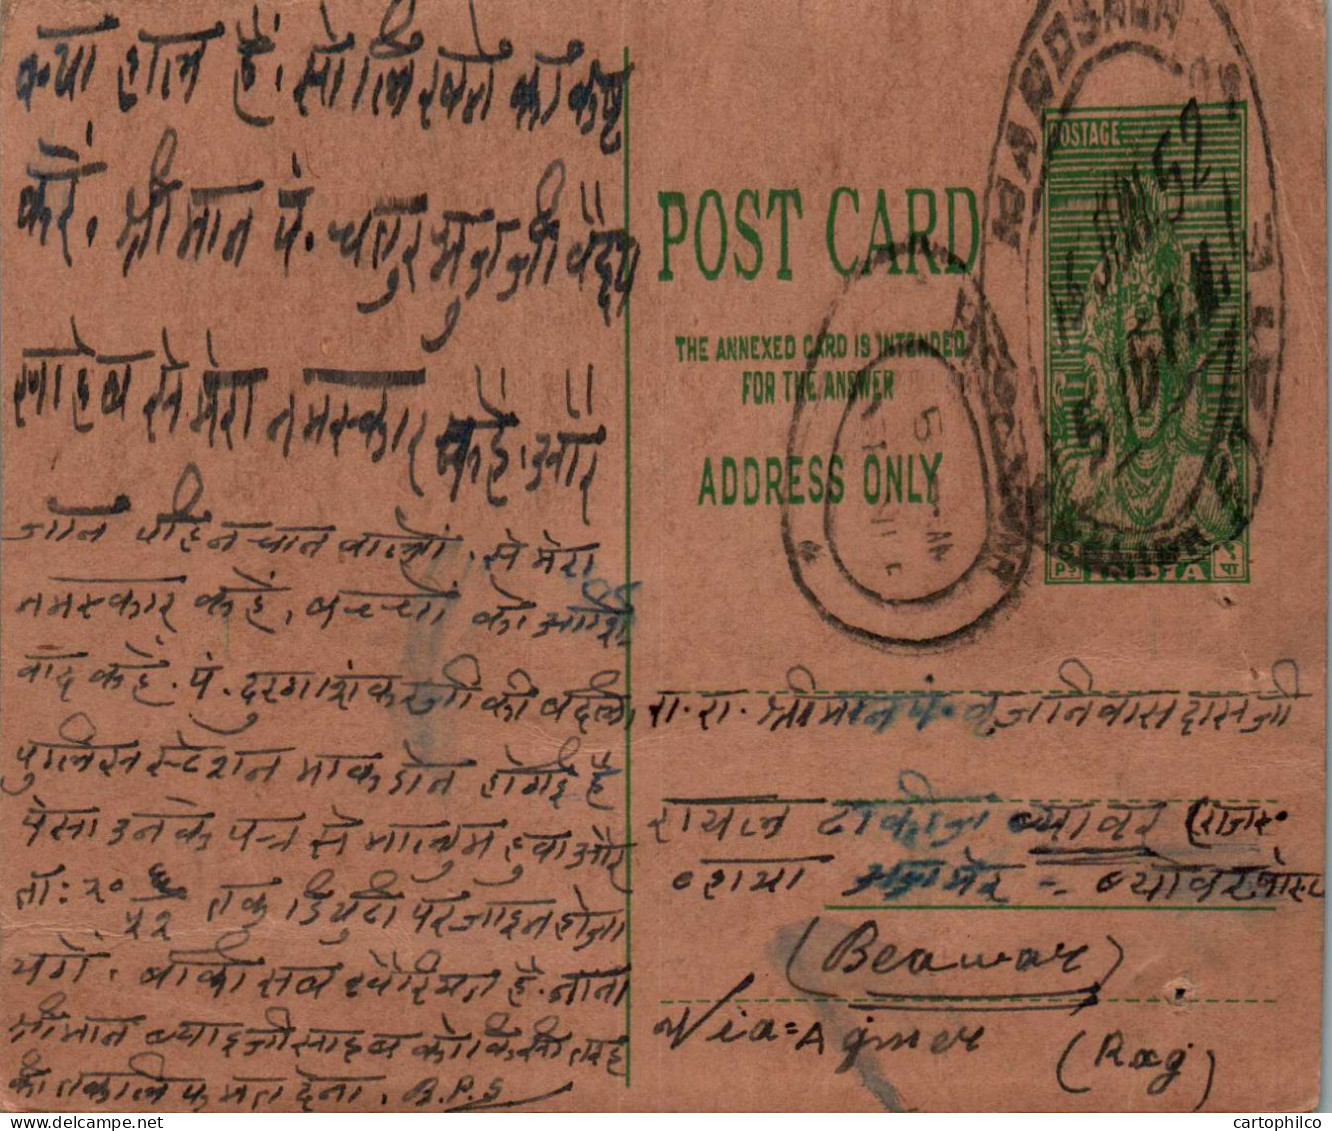 क्या हाल हैं. सो लिखने की कष्ट
करें. श्रीमान पं. चतुरभुज जी वैद्य
साहेब से मेरा नमस्कार कहें. और
जान पहिचान वालों से मेरा
नमस्कार कहें, बच्चों को आशी
र्वाद कहें. पं. दुरगाशंकरजी की बदली
पुलिस स्टेशन माकडोन होगई है
ऐसा उनके पत्र से मालुम हुवा और
ता: २० तक डियुटी पर जाइन होजा
यगे. बाकी सब खैरियत है. नाना
श्रीमान ब्याइजी साहब को किसी तरह
की तकलिफ मत देना. B.P.S.
POST CARD
THE ANNEXED CARD IS INTENDED
FOR THE ANSWER
ADDRESS ONLY
POSTAGE
INDIA
MANDSAUR
5 JAN. 52
रा. रा. श्रीमान पं. बृजनिवासदासजी
रायल टाकीज ब्यावर (राज.
वाया अजमेर = ब्यावर
(Beawar)
Via = Ajmer
(Raj)
cartophilco